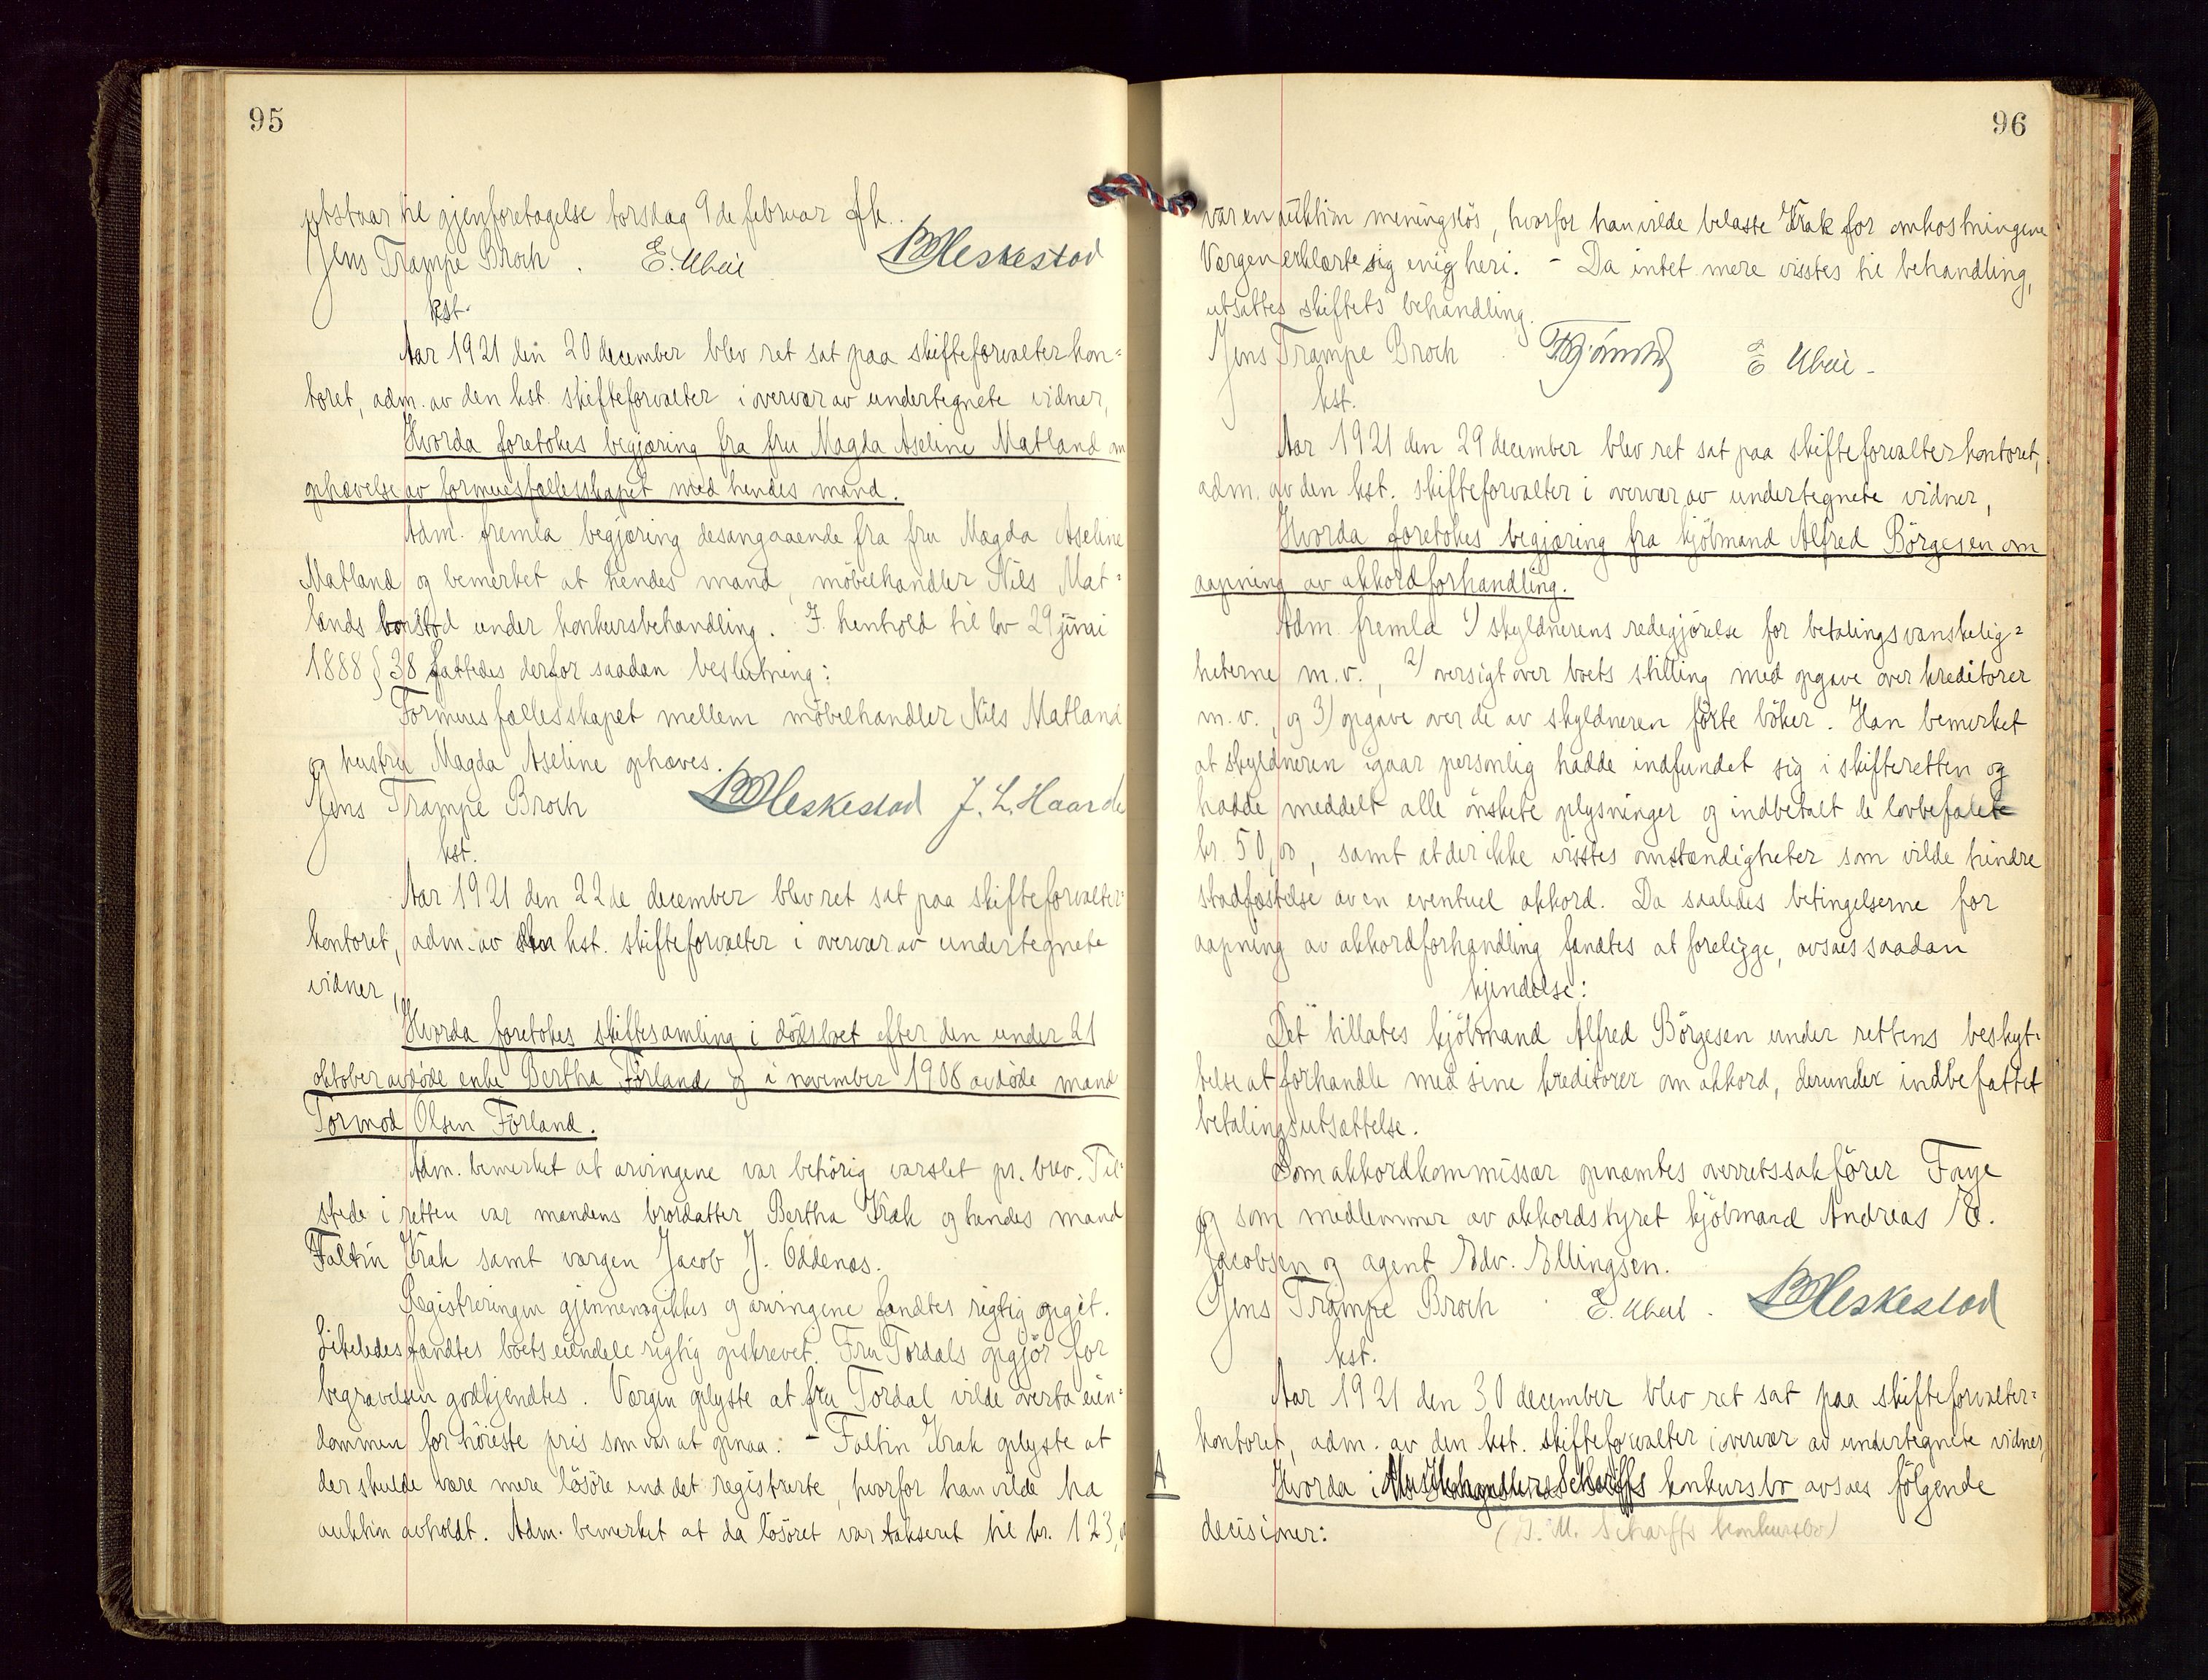 95
utstaar til gjenforetagelse torsdag 9de februar fk.
Jens Trampe Broch. E. Ubeie BMeskestad
kst.
Aar 1921 den 20 december blev ret sat paa skifteforvalterkon=
toret, adm. av den kst. skifteforvalter i overvær av undertegnete vidner,
Hvorda foretokes begjæring fra fru Magda Aseline Matland om
ophævelse av formuesfællesskapet med hendes mand.
Adm. fremla begjæring desangaaende fra fru Magda Aseline
Matland og bemerket at hendes mand, möbelhandler Nils Mat=
lands bo stod under konkursbehandling. I henhold til lov 29 juni
1888 § 38 fattedes derfor saadan beslutning:
Formuesfællesskapet mellem möbelhandler Nils Matland
og hustru Magda Aseline ophæves.
Jens Trampe Broch BMeskestad J. L. Haarde
kst.
Aar 1921 den 22de december blev ret sat paa skifteforvalter=
kontoret, adm. av den kst. skifteforvalter i overvær av undertegnete
vidner,
Hvorda foretokes skiftesamling i dödsboet efter den under 21
oktober avdöde enke Bertha Förland og i november 1908 avdöde mand
Tormod Olsen Förland.
Adm. bemerket at arvingene var behörig varslet pr. brev. Til=
stede i retten var mandens brordatter Bertha Krak og hendes mand
Faltin Krak samt vergen Jacob J. Oddenes.
Registreringen gjennemgikkes og arvingene fandtes rigtig opgit.
Likeledes fandtes boets eiendele rigtig opskrevet. Fru Tordals opgjör for
begravelsen godkjendtes. Vergen oplyste at fru Tordal vilde overta eien=
dommen for höieste pris som var at opnaa: - Faltin Krak oplyste at
der skulde være mere lösöre end det registrerte, hvorfor han vilde ha
auktion avholdt. Adm. bemerket at da lösöret var takseret til kr. 123,
96
var en auktion meningslös, hvorfor han vilde belaste Krak for omkostningene
Vergen erklærte sig enig heri. - Da intet mere visstes til behandling,
utsattes skiftets behandling.
Jens Trampe Broch E Ubeie -
kst.
Aar 1921 den 29 december blev ret sat paa skifteforvalterkontoret,
adm. av den kst. skifteforvalter i overvær av undertegnete vidner,
Hvorda foretokes begjæring fra kjöbmand Alfred Börgesen om
aapning av akkordforhandling.
Adm. fremla 1) skyldnerens redegjörelse for betalingsvanskelig=
heterne m.v., 2) oversigt over boets stilling med opgave over kreditorer
m.v., og 3) opgave over de av skyldneren förte böker. Han bemerket
at skyldneren igaar personlig hadde indfundet sig i skifteretten og
hadde meddelt alle önskete oplysninger og indbetalt de lovbefalete
kr. 50,00, samt at der ikke visstes omstændigheter som vilde hindre
stadfæstelse av en eventuel akkord. Da saaledes betingelserne for
aapning av akkordforhandling fandtes at foreligge, avsaes saadan
kjendelse:
Det tillates kjöbmand Alfred Börgesen under rettens beskyt=
telse at forhandle med sine kreditorer om akkord, derunder indbefattet
betalingsutsættelse.
Som akkordkommissær opnævntes overretssakförer Faye
og som medlemmer av akkordstyret kjöbmand Andreas E.
Jacobsen og agent Edv. Ellingsen.
Jens Trampe Broch. E. Ubeie. BMeskestad
kst.
Aar 1921 den 30 december blev ret sat paa skifteforvalter=
kontoret, adm. av den kst. skifteforvalter i overvær av undertegnete vidner,
A Hvorda i Musikhandler Scharffs konkursbo avsaes fölgende
decisioner: (I. M. Scharffs konkursbo)